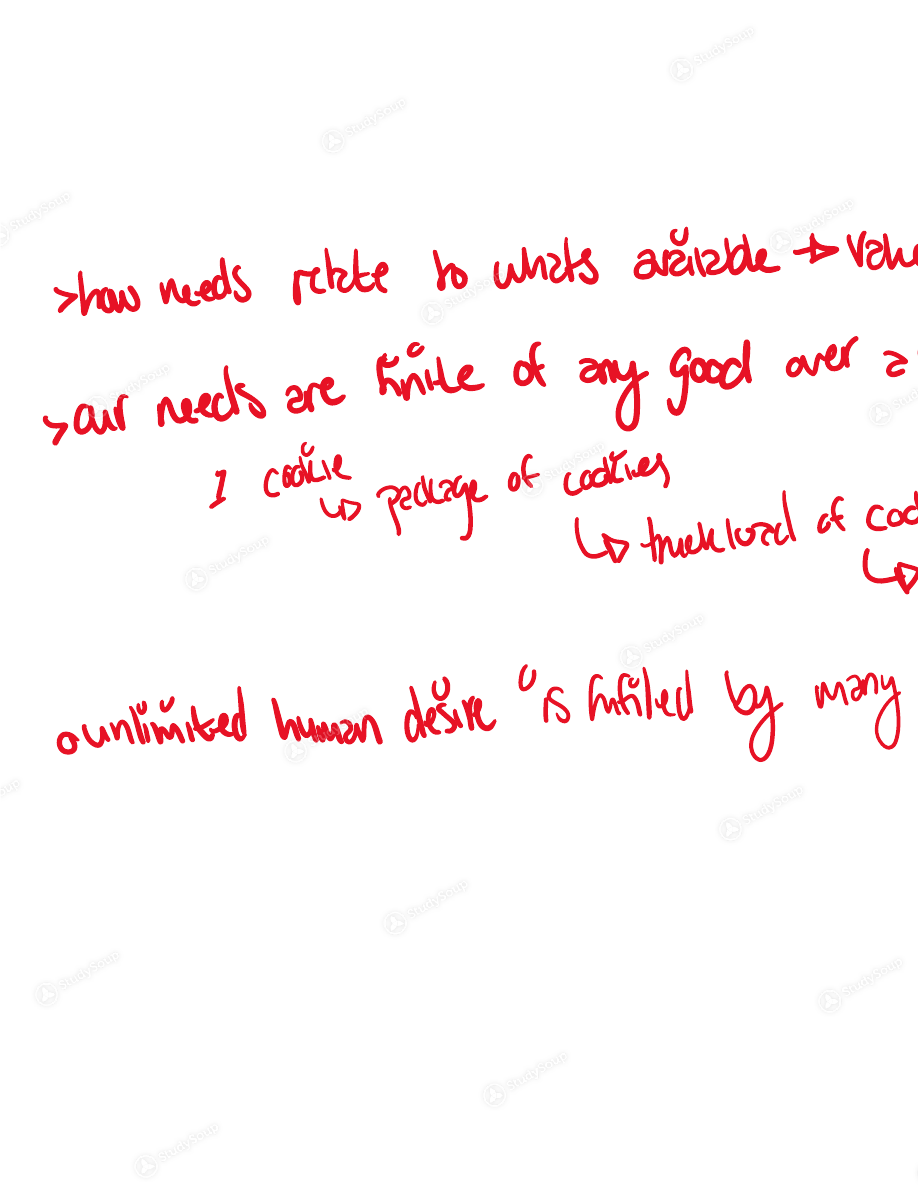 >how needs relate to whats available → value
>our needs are finite of any good over a
1 cookie
↳ package of cookies
↳ truckload of
unlimited human desire is fulfilled by many
StudySoup